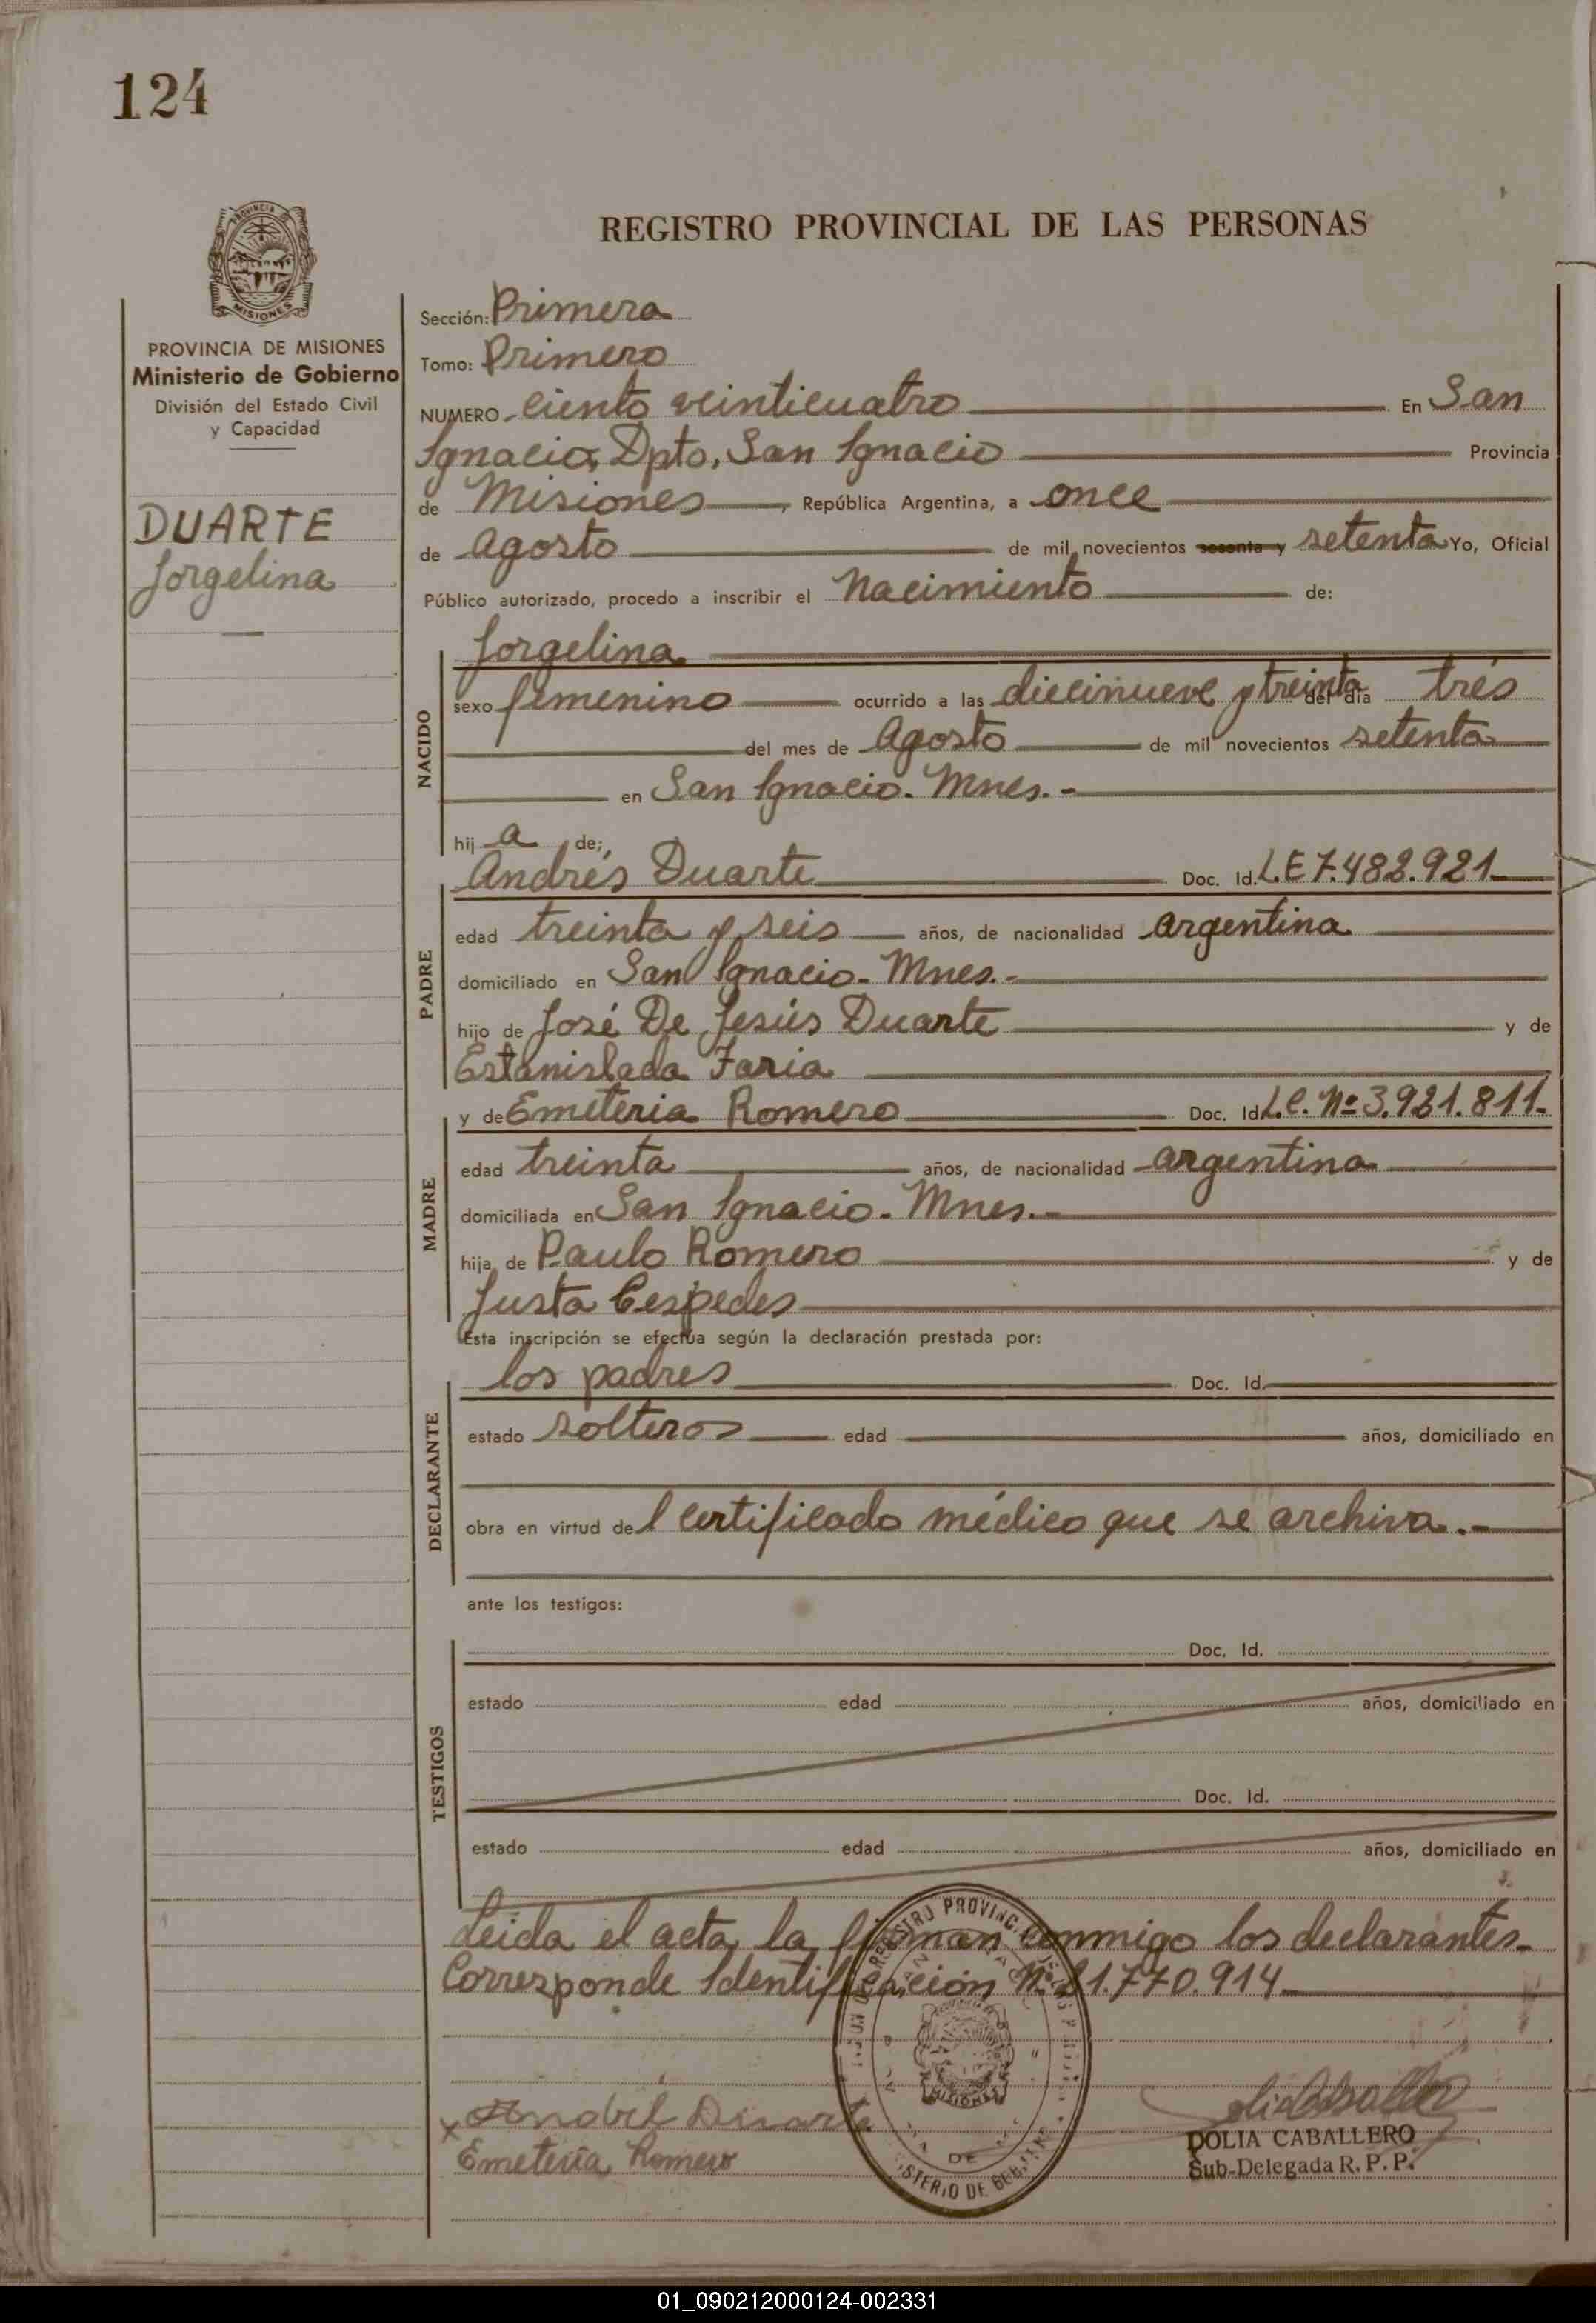 124
REGISTRO PROVINCIAL DE LAS PERSONAS
MISIONES
PROVINCIA DE MISIONES
Ministerio de Gobierno
División del Estado Civil
y Capacidad
DUARTE
Jorgelina
Sección: Primera
Tomo: Primero
NUMERO ciento veinticuatro En San
Ignacio, Dpto, San Ignacio Provincia
de Misiones, República Argentina, a once
de Agosto de mil novecientos sesenta y setenta Yo, Oficial
Público autorizado, procedo a inscribir el Nacimiento de:
NACIDO
Jorgelina
sexo femenino ocurrido a las diecinueve y treinta del día trés
del mes de Agosto de mil novecientos setenta
en San Ignacio. Mnes.-
hij a de:
PADRE
Andrés Duarte Doc. Id. L.E 7.482.921
edad treinta y seis años, de nacionalidad argentina
domiciliado en San Ignacio. Mnes.-
hijo de José De Jesús Duarte y de
Estanislada Faria
MADRE
y de Emeteria Romero Doc. Id L.C. Nº 3.921.811.
edad treinta años, de nacionalidad argentina
domiciliada en San Ignacio. Mnes.-
hija de Paulo Romero y de
Justa Cespedes
Esta inscripción se efectúa según la declaración prestada por:
DECLARANTE
los padres Doc. Id.
estado solteros edad años, domiciliado en
obra en virtud del certificado médico que se archiva.-
ante los testigos:
TESTIGOS
Doc. Id.
estado edad años, domiciliado en
Doc. Id.
estado edad años, domiciliado en
Leida el acta, la firman conmigo los declarantes.
Corresponde Identificación Nº 21.770.914
MISIONES
Duarte
Emeteria Romero
DOLIA CABALLERO
Sub-Delegada R. P. P.
01_090212000124-002331